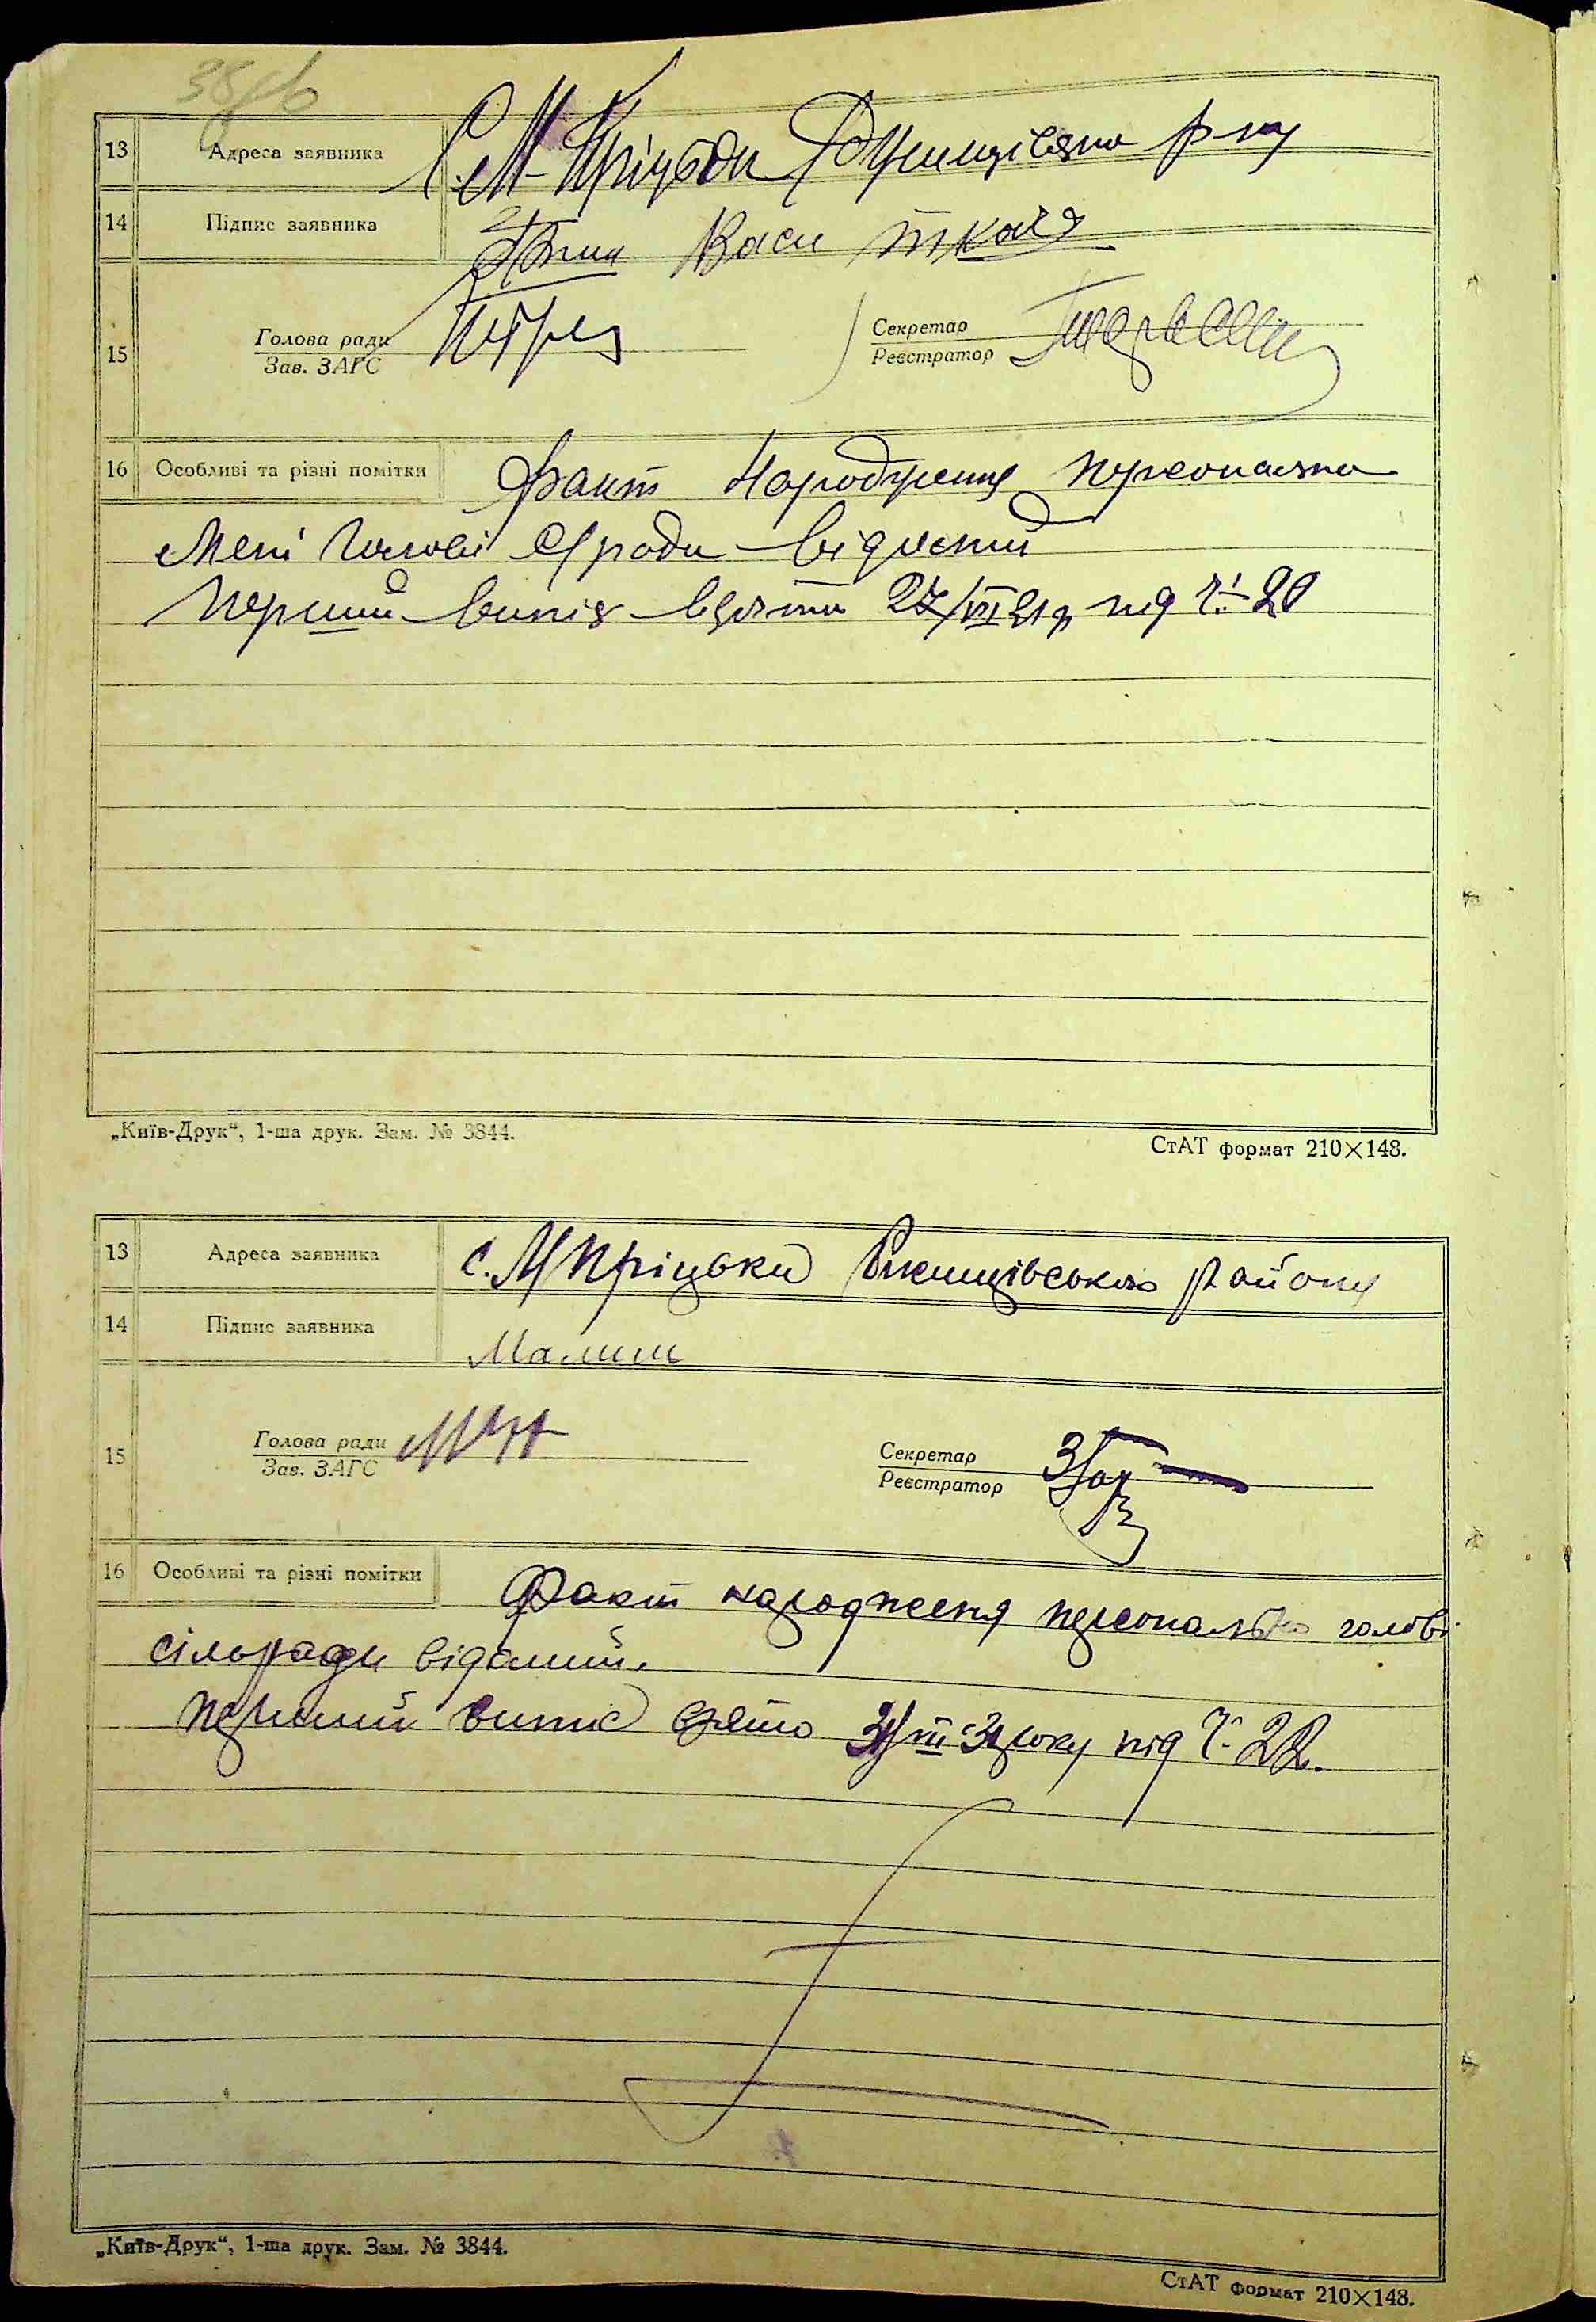 13 Адреса заявника С. М-Кріцьки р-ну
14 Підпис заявника
15 Голова ради Секретар
Зав. ЗАГС Реєстратор
16 Особливі та різні помітки Факт народження персонально
Мені Голові с/ради відомий
Перший випіз взято 27/VII 31 р під Ч. 20
„Київ-Друк“, 1-ша друк. Зам. № 3844.
СтАТ формат 210×148.
13 Адреса заявника с. М Кріцьки району
14 Підпис заявника Малиш
15 Голова ради Секретар
Зав. ЗАГС Реєстратор
16 Особливі та різні помітки Факт народження персонально голові
сільради відомий.
перший випис взято року під Ч. 22.
„Київ-Друк“, 1-ша друк. Зам. № 3844.
СтАТ формат 210×148.